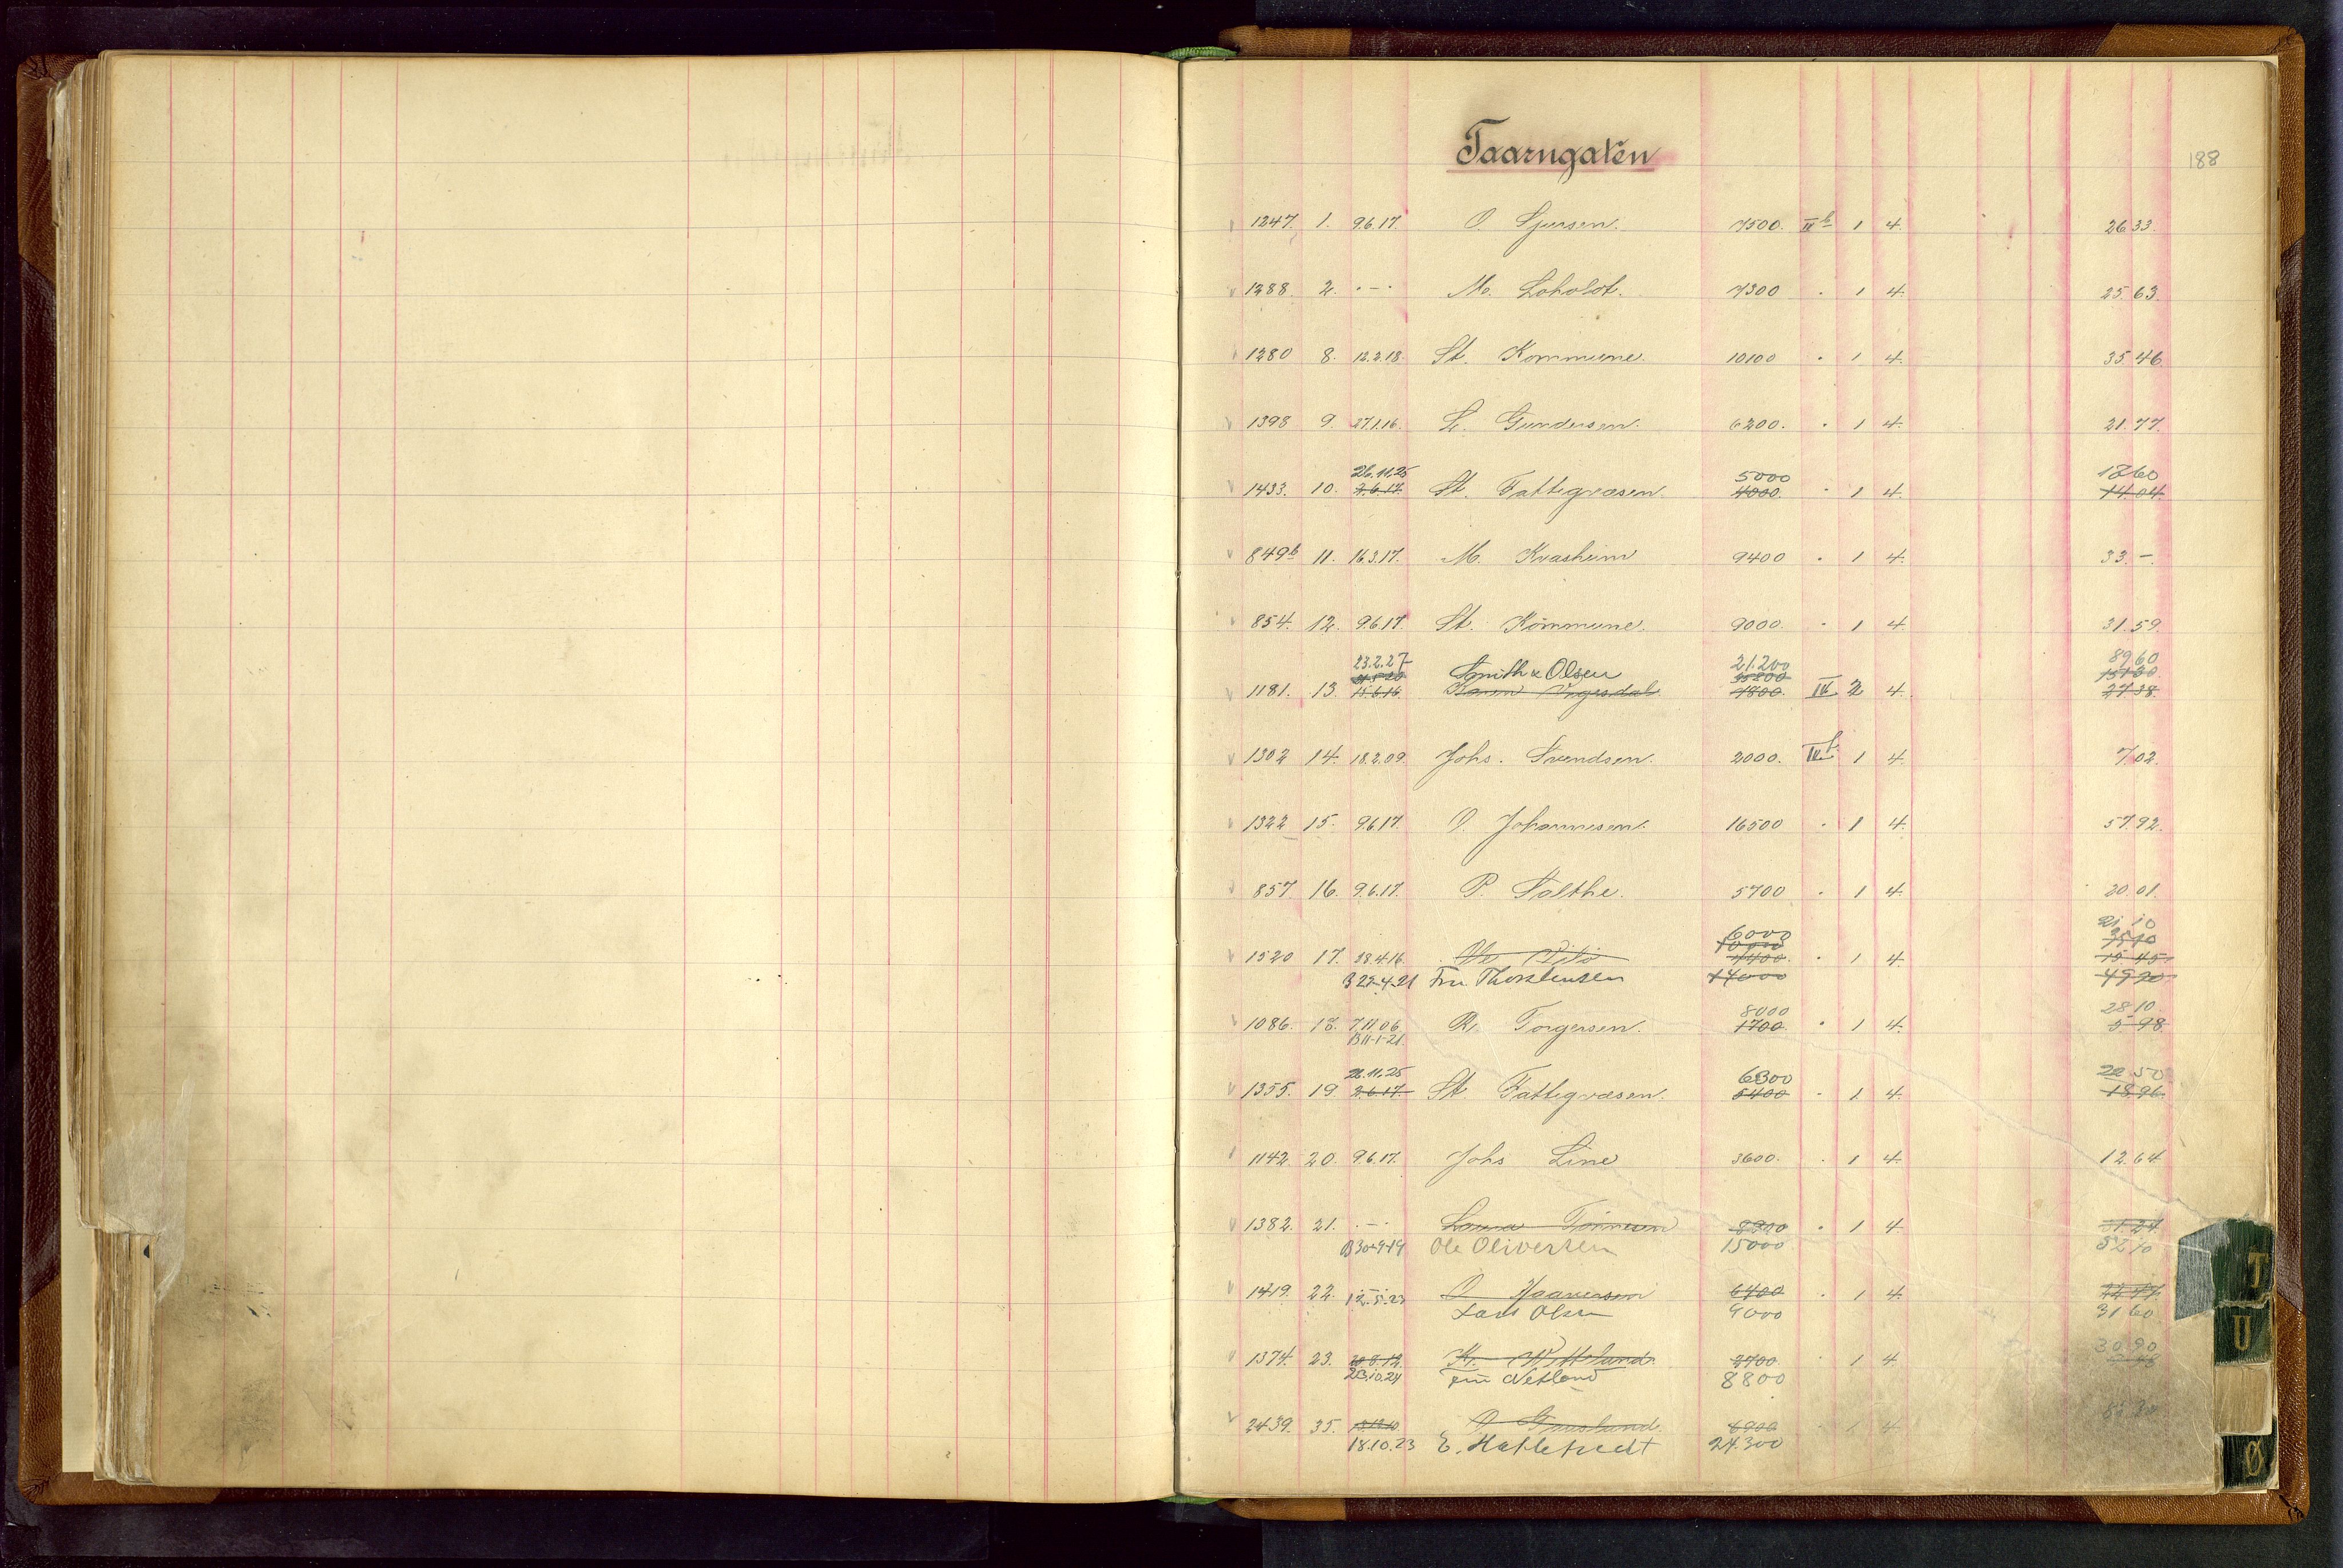 Taarngaten
188
1247. 1. 9.6.17. O. Sjursen. 7500. II b 1 4. 26.33.
1288. 2. . - . M. Loholdt. 7300 . 1 4. 25.63.
1280 8. 12.2.18. St. Kommune. 10100 . 1 4. 35.46.
1398 9. 27.1.16. L. Gundersen. 6200. . 1 4. 21.77.
26.11.25 5000 1760
1433. 10. 2.6.17. St. Fattigvæsen 4000. . 1 4. 14.04.
849b 11. 16.3.17. M. Kvasheim 9400 . 1 4. 33.-.
854. 12. 9.6.17. St. Kommune. 9000. . 1 4. 31.59.
23.2.27 Smith & Olsen 21.200 89.60
1181. 13. 15.6.16. 7800. IV 2 4. 27.38.
1302 14. 18.2.09. Johs. Svendsen. 2000. II b 1 4. 7.02.
1322 15. 9.6.17. O. Johannesen. 16500 . 1 4. 57.92.
857. 16. 9.6.17. P. Salthe. 5700 . 1 4. 20.01.
6000 21.10
10000 35.10
1520 17. 28.4.16. 4400. . 1 4. 15.45.
B 22-4-21 Fru Thorstensen 14000 49.20
8000 28.10
1086. 18. 7.11.06. R. Torgersen. 1700. . 1 4. 5.98.
B11-1-21.
26.11.25 6300 22.50
1355. 19. 2.6.17. St. Fattigvæsen. 5400 . 1 4. 18.96.
1142. 20. 9.6.17. Johs Line 3600. . 1 4. 12.64.
1382. 21. . - . Tønnesen 8900 . 1 4. 31.24.
B 30-9-19 Ole Oliversen 15000 52.70
1419. 22. O. Haaversen 6400 . 1 4.
12.5.23 Lars Olsen 9000 31.60
30.90
1374. 23. 20.8.12. 2700. . 1 4
23.10.24 Fru Netland 8800
2439. 35. O. 6900 . 1 4
18.10.23 E. Hatletvedt 24.300
T
U
Ø